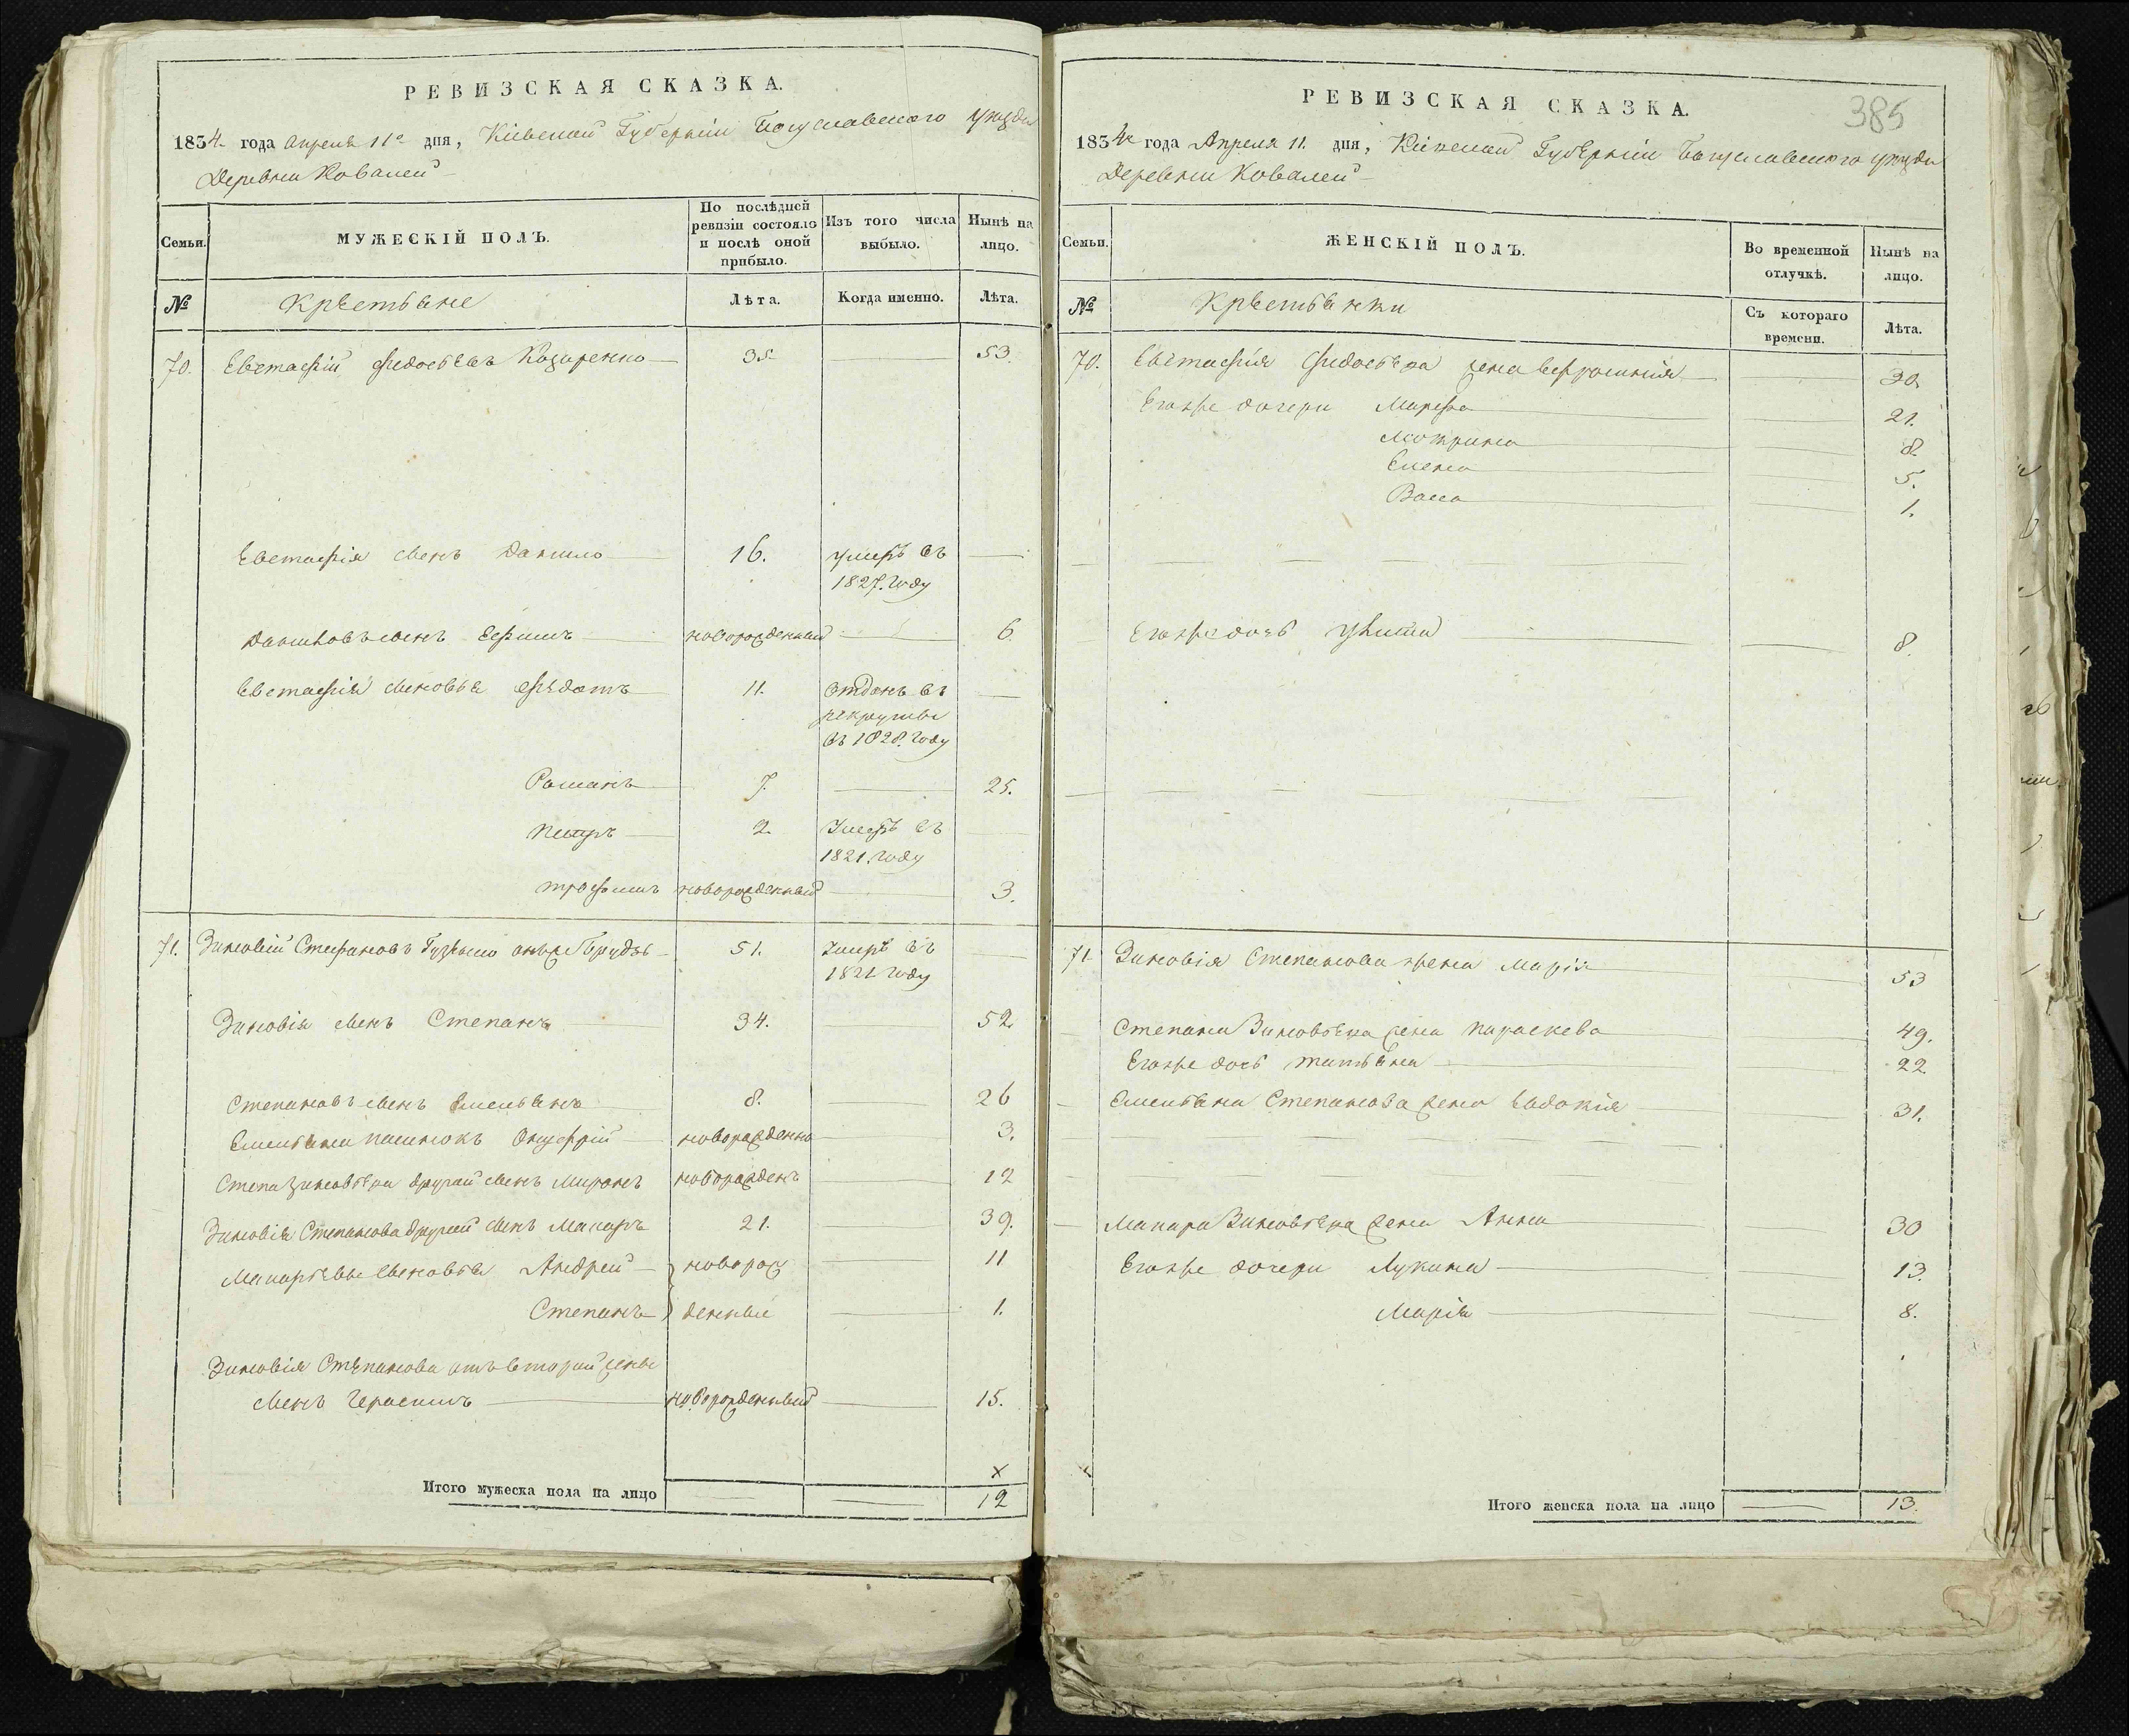 РЕВИЗСКАЯ СКАЗКА.
1834 года Апреля 11го дня, Кіевской Губерніи Богуславского уезда
Деревни Ковалей
Семьи. МУЖЕСКІЙ ПОЛЪ. По послѣдней ревизіи состояло и послѣ оной прибыло. Изъ того числа выбыло. Нынѣ на лицо.
№ Крестьяне Лѣта. Когда именно. Лѣта.
70. Евстафій Федосѣевъ Козаренко 35 53
Евстафія сынъ Данило 16. умеръ въ
1827. году
Даниловъ сынъ Ефимъ новорожденный 6
Евстафія сыновья Федотъ 11. отданъ въ
рекруты
въ 1828. году
Романъ 7. 25.
Петръ 2. Умеръ въ
1821. году
Трофимъ новорожденный 3.
71. Зиновій Стефановъ онже 51. Умеръ въ
1821 году
Зиновія сынъ Степанъ 34. 52
Степановъ сынъ Емельянъ 8. 26
Емельяна пасинокъ Онуфрій новорожденно 3.
Степа Зиновьева другой сынъ Миронъ новорожденъ 12
Зиновія Степанова другой сынъ Макаръ 21. 39.
Макарьевы сыновья Андрей новорож 11
Степанъ денные 1.
Зиновія Степанова отъ второй жены
сынъ Герасимъ новорожденный 15.
Х
Итого мужеска пола на лицо 12
385
РЕВИЗСКАЯ СКАЗКА.
1834 года Апреля 11. дня, Кіевской Губерніи Богуславского уезда
Деревни Ковалей
Семьи. ЖЕНСКІЙ ПОЛЪ. Во временной отлучкѣ. Нынѣ на лицо.
№ Крестьянки Съ котораго времени. Лѣта.
70. Евстафія Федосѣева жена Ефросинія 30
Егоже дочери Марфа 21.
Мотрина 8
Елена 5.
Васса 1.
Егоже дочь Улита 8.
71 Зиновія Степанова жена Марія 53
Степана Зиновьева жена Параскева 49.
Егоже дочь Татьяна 22
Емельяна Степанова жена Евдокія 31.
Макара Зиновьева жена Анна 30
Егоже дочери Лукина 13.
Марія 8.
Итого женска пола на лицо 13.